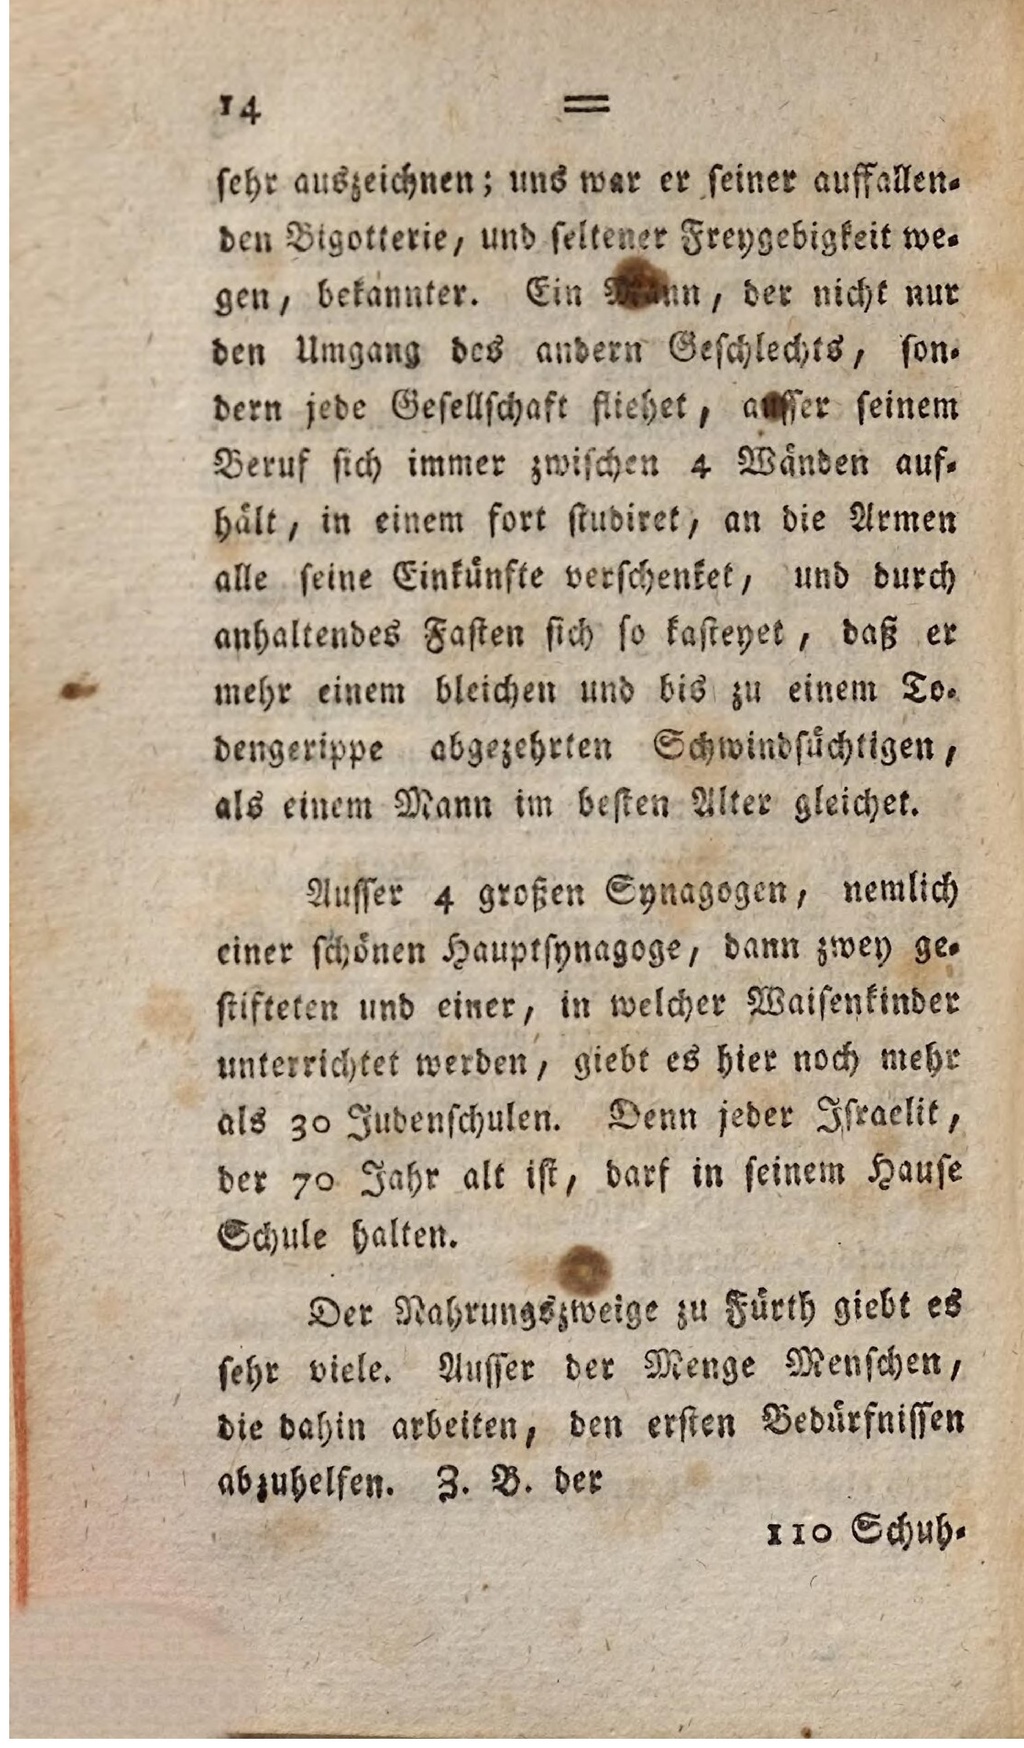 14 =
sehr auszeichnen; uns war er seiner auffallen-
den Bigotterie, und seltener Freygebigkeit we-
gen, bekannter. Ein Mann, der nicht nur
den Umgang des andern Geschlechts, son-
dern jede Gesellschaft fliehet, ausser seinem
Beruf sich immer zwischen 4 Wänden auf-
hält, in einem fort studiret, an die Armen
alle seine Einkünfte verschenket, und durch
anhaltendes Fasten sich so kasteyet, daß er
mehr einem bleichen und bis zu einem To-
dengerippe abgezehrten Schwindsüchtigen,
als einem Mann im besten Alter gleichet.
Ausser 4 großen Synagogen, nemlich
einer schönen Hauptsynagoge, dann zwey ge-
stifteten und einer, in welcher Waisenkinder
unterrichtet werden, giebt es hier noch mehr
als 30 Judenschulen. Denn jeder Israelit,
der 70 Jahr alt ist, darf in seinem Hause
Schule halten.
Der Nahrungszweige zu Fürth giebt es
sehr viele. Ausser der Menge Menschen,
die dahin arbeiten, den ersten Bedürfnissen
abzuhelfen. Z. B. der
110 Schuh-